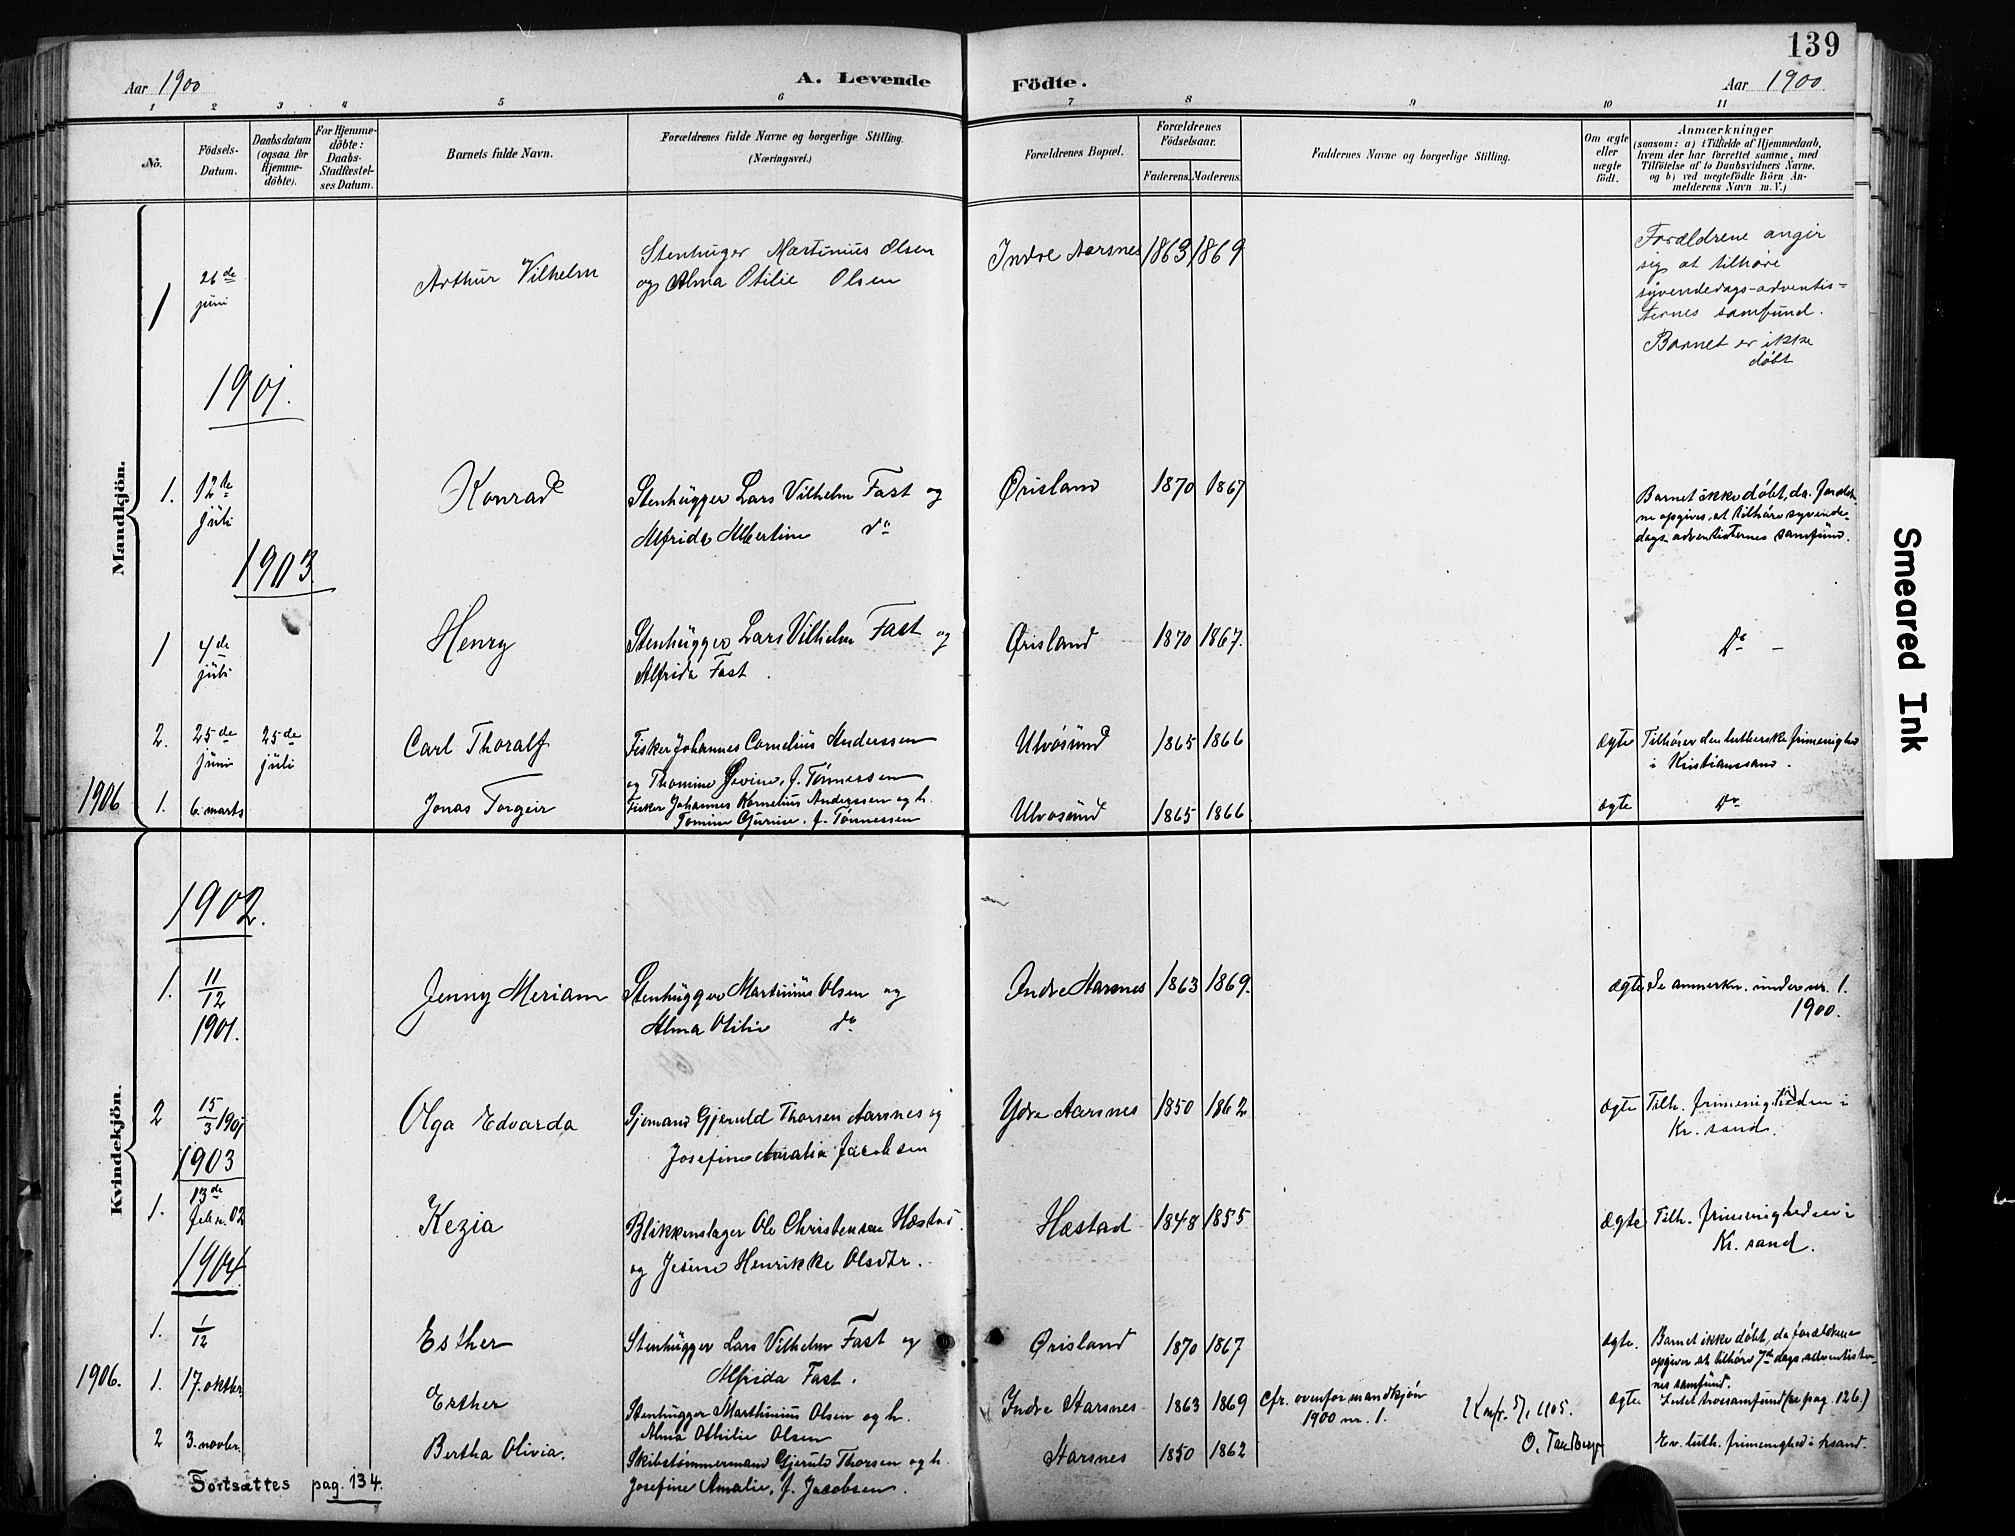 139
Aar 1900
A. Levende Födte.
Aar 1900
1 2 3 4 5 6 7 8 9 10 11
No.
Födsels-Datum.
Daabsdatum (ogsaa for Hjemmedöbte).
For Hjemmedöbte: Daabs-Stadfæstelses Datum.
Barnets fulde Navn.
Forældrenes fulde Navne og borgerlige Stilling. (Næringsvei.)
Forældrenes Bopæl.
Forældrenes Födselsaar.
Faderens. Moderens.
Faddernes Navne og borgerlige Stilling.
Om ægte eller uægte födt.
Anmærkninger
(saasom: a) i Tilfælde af Hjemmedaab, hvem der har forrettet samme, med Tilföielse af to Daabsvidners Navne. og b) ved uægtefödte Börn Anmelderens Navn m. V.)
Mandkjön.
1 26de juni
Arthur Vilhelm
Stenhuger Martinius Olsen
og Alma Otilie Olsen
Indre Aarsnes 1863 1869
Forældrene angir
sig at tilhøre
syvendedags-adventis=
ternes samfund.
Barnet er ikke
døbt
1901.
1. 12te juli
Konrad
Stenhügger Lars Vilhelm Fast og
Alfrida Albertine do
Ørisland 1870 1867
Barnet ikke døbt, da foreldre-
ne opgives at tilhøre syvende-
dags adventisternes samfund.
1903
1 4de juli
Henry
Stenhügger Lars Vilhelm Fast og
Alfrida Fast.
Ørisland 1870 1867.
Do –
2. 25de juni 25de juli
Carl Thoralf
Fisker Johannes Cornelius Anderssen
og Thomine Gevine, f. Tønnessen
Ulvøsund 1865 1866
ægte
Tilhører den lutherske frimenighed
i Kristianssand.
1906 1. 6. marts
Jonas Torgeir
Fisker Johannes Kornelius Anderssen og h.
Tomine Gurine, f. Tønnessen
Ulvøsund 1865 1866
ægte
Do
Kvindekjön.
1902.
1. 11/12 1901.
Jenny Meriam
Stenhügger Martinius Olsen og
Alma Otilie do
Indre Aarsnes 1863 1869.
ægte
Se anmerkn. under nr. 1.
1900.
2 15/3 1901
Olga Edvarda
Sjømand Gjeruld Thorsen Aarsnes og
Josefine Amalia Jacobsen
Ydre Aarsnes 1850 1862
ægte
Tilh. frimenigheden i
Kr. sand.
1903
1. 13de febr. 02
Kezia
Blikkenslager Ole Christensen Hæstad
og Jesine Henrikke Olsdtr.
Hæstad 1848 1855
ægte
Tilh. frimenigheden i
Kr. sand.
1904.
1. 1/12
Esther
Stenhügger Lars Vilhelm Fast og
Alfrida Fast.
Ørisland 1870 1867
ægte.
Barnet ikke døbt, da forældrene
opgiver at tilhøre 7de dags adventister-
nes samfund.
1906. 1. 17. oktbr.
Esther
Stenhugger Marthinius Olsen og h.
Alma Othilie Olsen
Indre Aarsnes 1863 1869
Cfr. ovenfor mandkjøn
1900 nr. 1.
ægte
Intet trossamfund (se pag. 126)
O. Tandberg
2 3. novbr.
Bertha Olivia.
Skibstømmermand Gjeruld Thorsen og h.
Josefine Amalie, f. Jacobsen.
Aarsnes 1850 1862
Ev. luth. frimenighed i Krsand.
Fortsættes pag. 134.
Smeared Ink